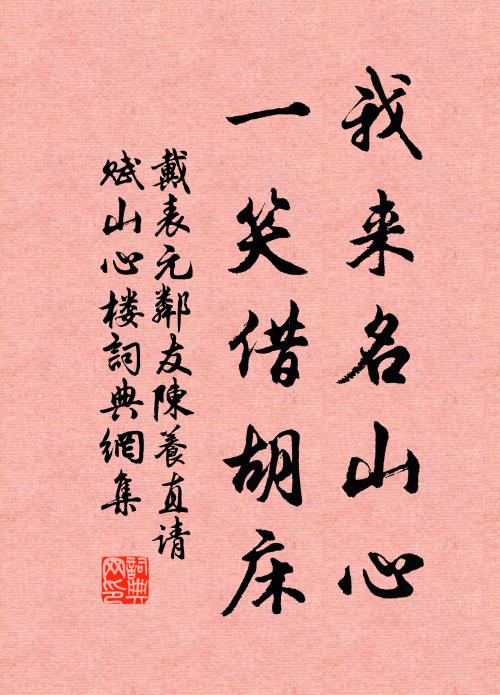 我来名山心
一笑借胡床
戴表元鄰友陳養直请
赋山心楼詞典網集
詞典
网印